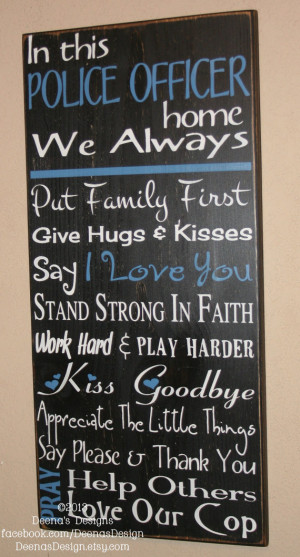 In this
POLICE OFFICER
home
We Always
Put Family First
Give Hugs & Kisses
Say I Love You
STAND STRONG IN FAITH
Work Hard & PLAY HARDER
Kiss Goodbye
Appreciate The Little Things
Say Please & Thank You
PRAY
Help Others
Love Our Cop
©2013
Deena's Designs
facebook.com/DeenasDesign
DeenasDesign.etsy.com